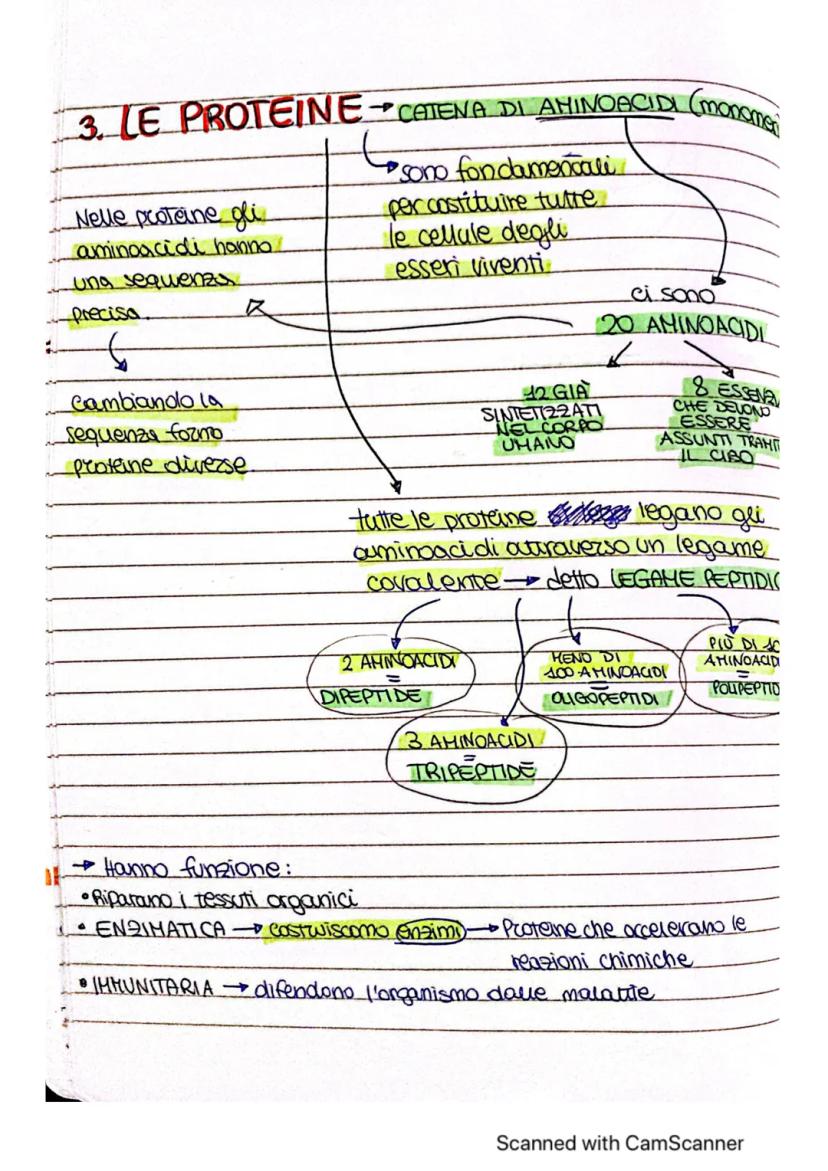 3. LE PROTEINE → CATENA DI AMINOACIDI (monomer
sono fondamentali
per costituire tutte
le cellule degli
esseri viventi
Nelle proteine gli
aminoacidi hanno
una sequenza
precisa.
cambiando la
sequenza formo
proteine diverse.
ci sono
20 AMINOACIDI
12 GIÀ
SINTETIZZATI
NEL CORPO
UMANO
8 ESSENZ
CHE DEVONO
ESSERE
ASSUNTI TRAMIT
IL CIBO
tutte le proteine legano gli
aminoacidi attraverso un legame
covalente → detto LEGAME PEPTIDIC
2 AMINOACIDI
=
DIPEPTIDE
3 AMINOACIDI
=
TRIPEPTIDE
MENO DI
100 AMINOACIDI
=
OLIGOPEPTIDI
PIÙ DI 10
AMINOACID
=
POLIPEPTID
→ Hanno funzione:
• Riparano i tessuti organici
• ENZIMATICA → costruiscono enzimi → Proteine che accelerano le
reazioni chimiche
• IMMUNITARIA → difendono l'organismo dalle malattie
Scanned with CamScanner